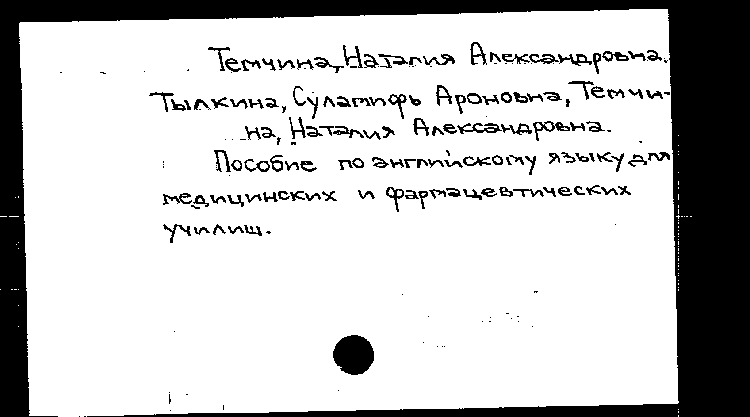 Темчина, Наталия Александровна.
Тылкина, Суламифь Ароновна, Темчи-
на, Наталия Александровна.
Пособие по английскому языку для
медицинских и фармацевтических
училищ.